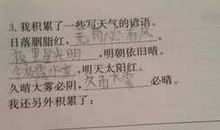 3.我积累了一些写天气的谚语。
日落胭脂红,无雨必有风。
夜里星光明,明朝依旧晴。
今夜露水重,明天太阳红。
久晴大雾必阴,久雨大雾必晴。
我还另外积累了: